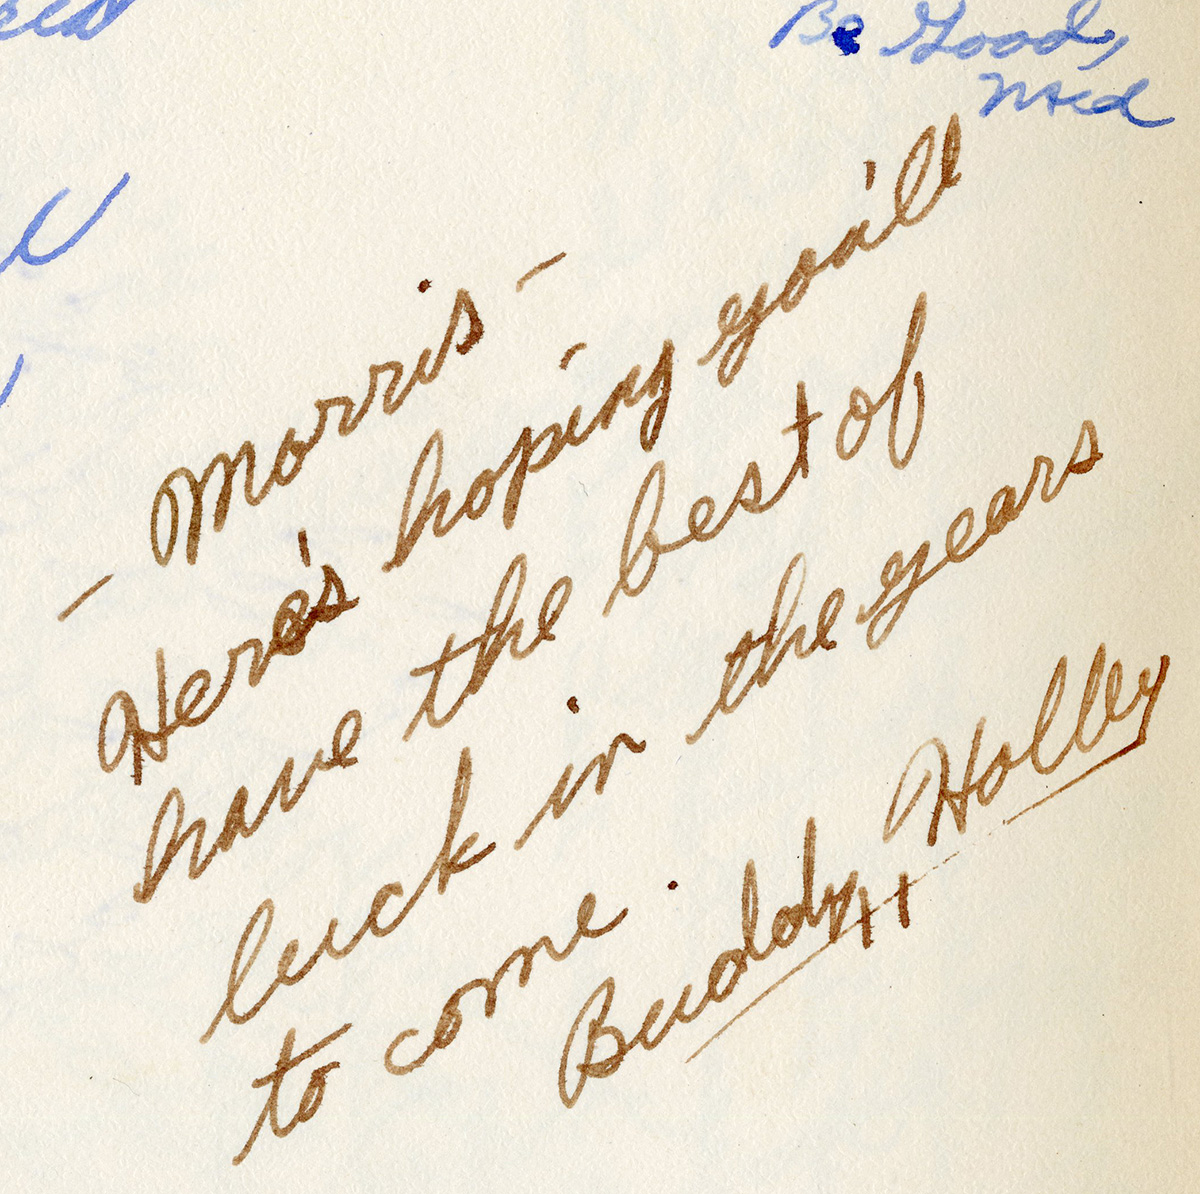 Be Good,
Med
- Morris -
Here's hoping you'll
have the best of
luck in the years
to come.
Buddy Holley